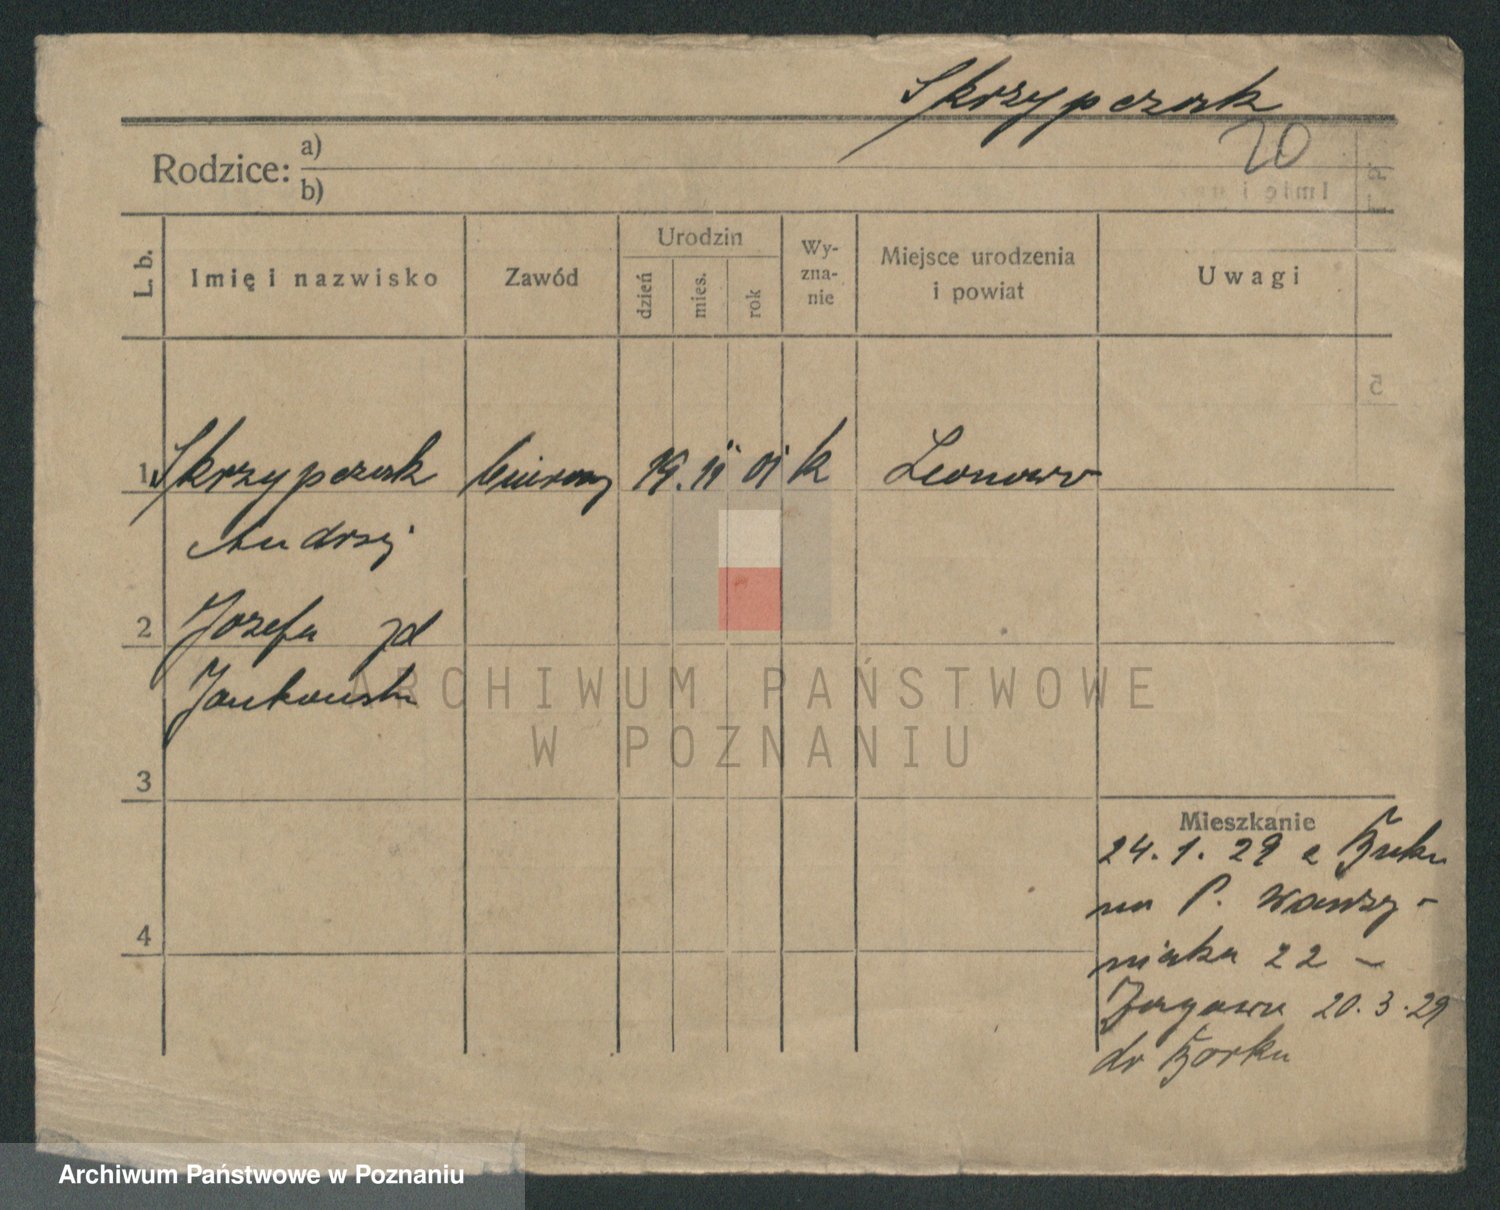 Skrzypczak
20
Rodzice: a)
b)
L. b.
Imię i nazwisko
Zawód
Urodzin
dzień
mies.
rok
Wy-
zna-
nie
Miejsce urodzenia
i powiat
Uwagi
1 Skrzypczak biurowy 19. 11 01 k Leonowo
Andrzej
2 Jozefa zd
Jankowska
3
4
Mieszkanie
24. 1. 29 z Buku
na P. Wawrzy-
niaka 22 -
20. 3. 29
do Borku
ARCHIWUM PAŃSTWOWE
W POZNANIU
Archiwum Państwowe w Poznaniu